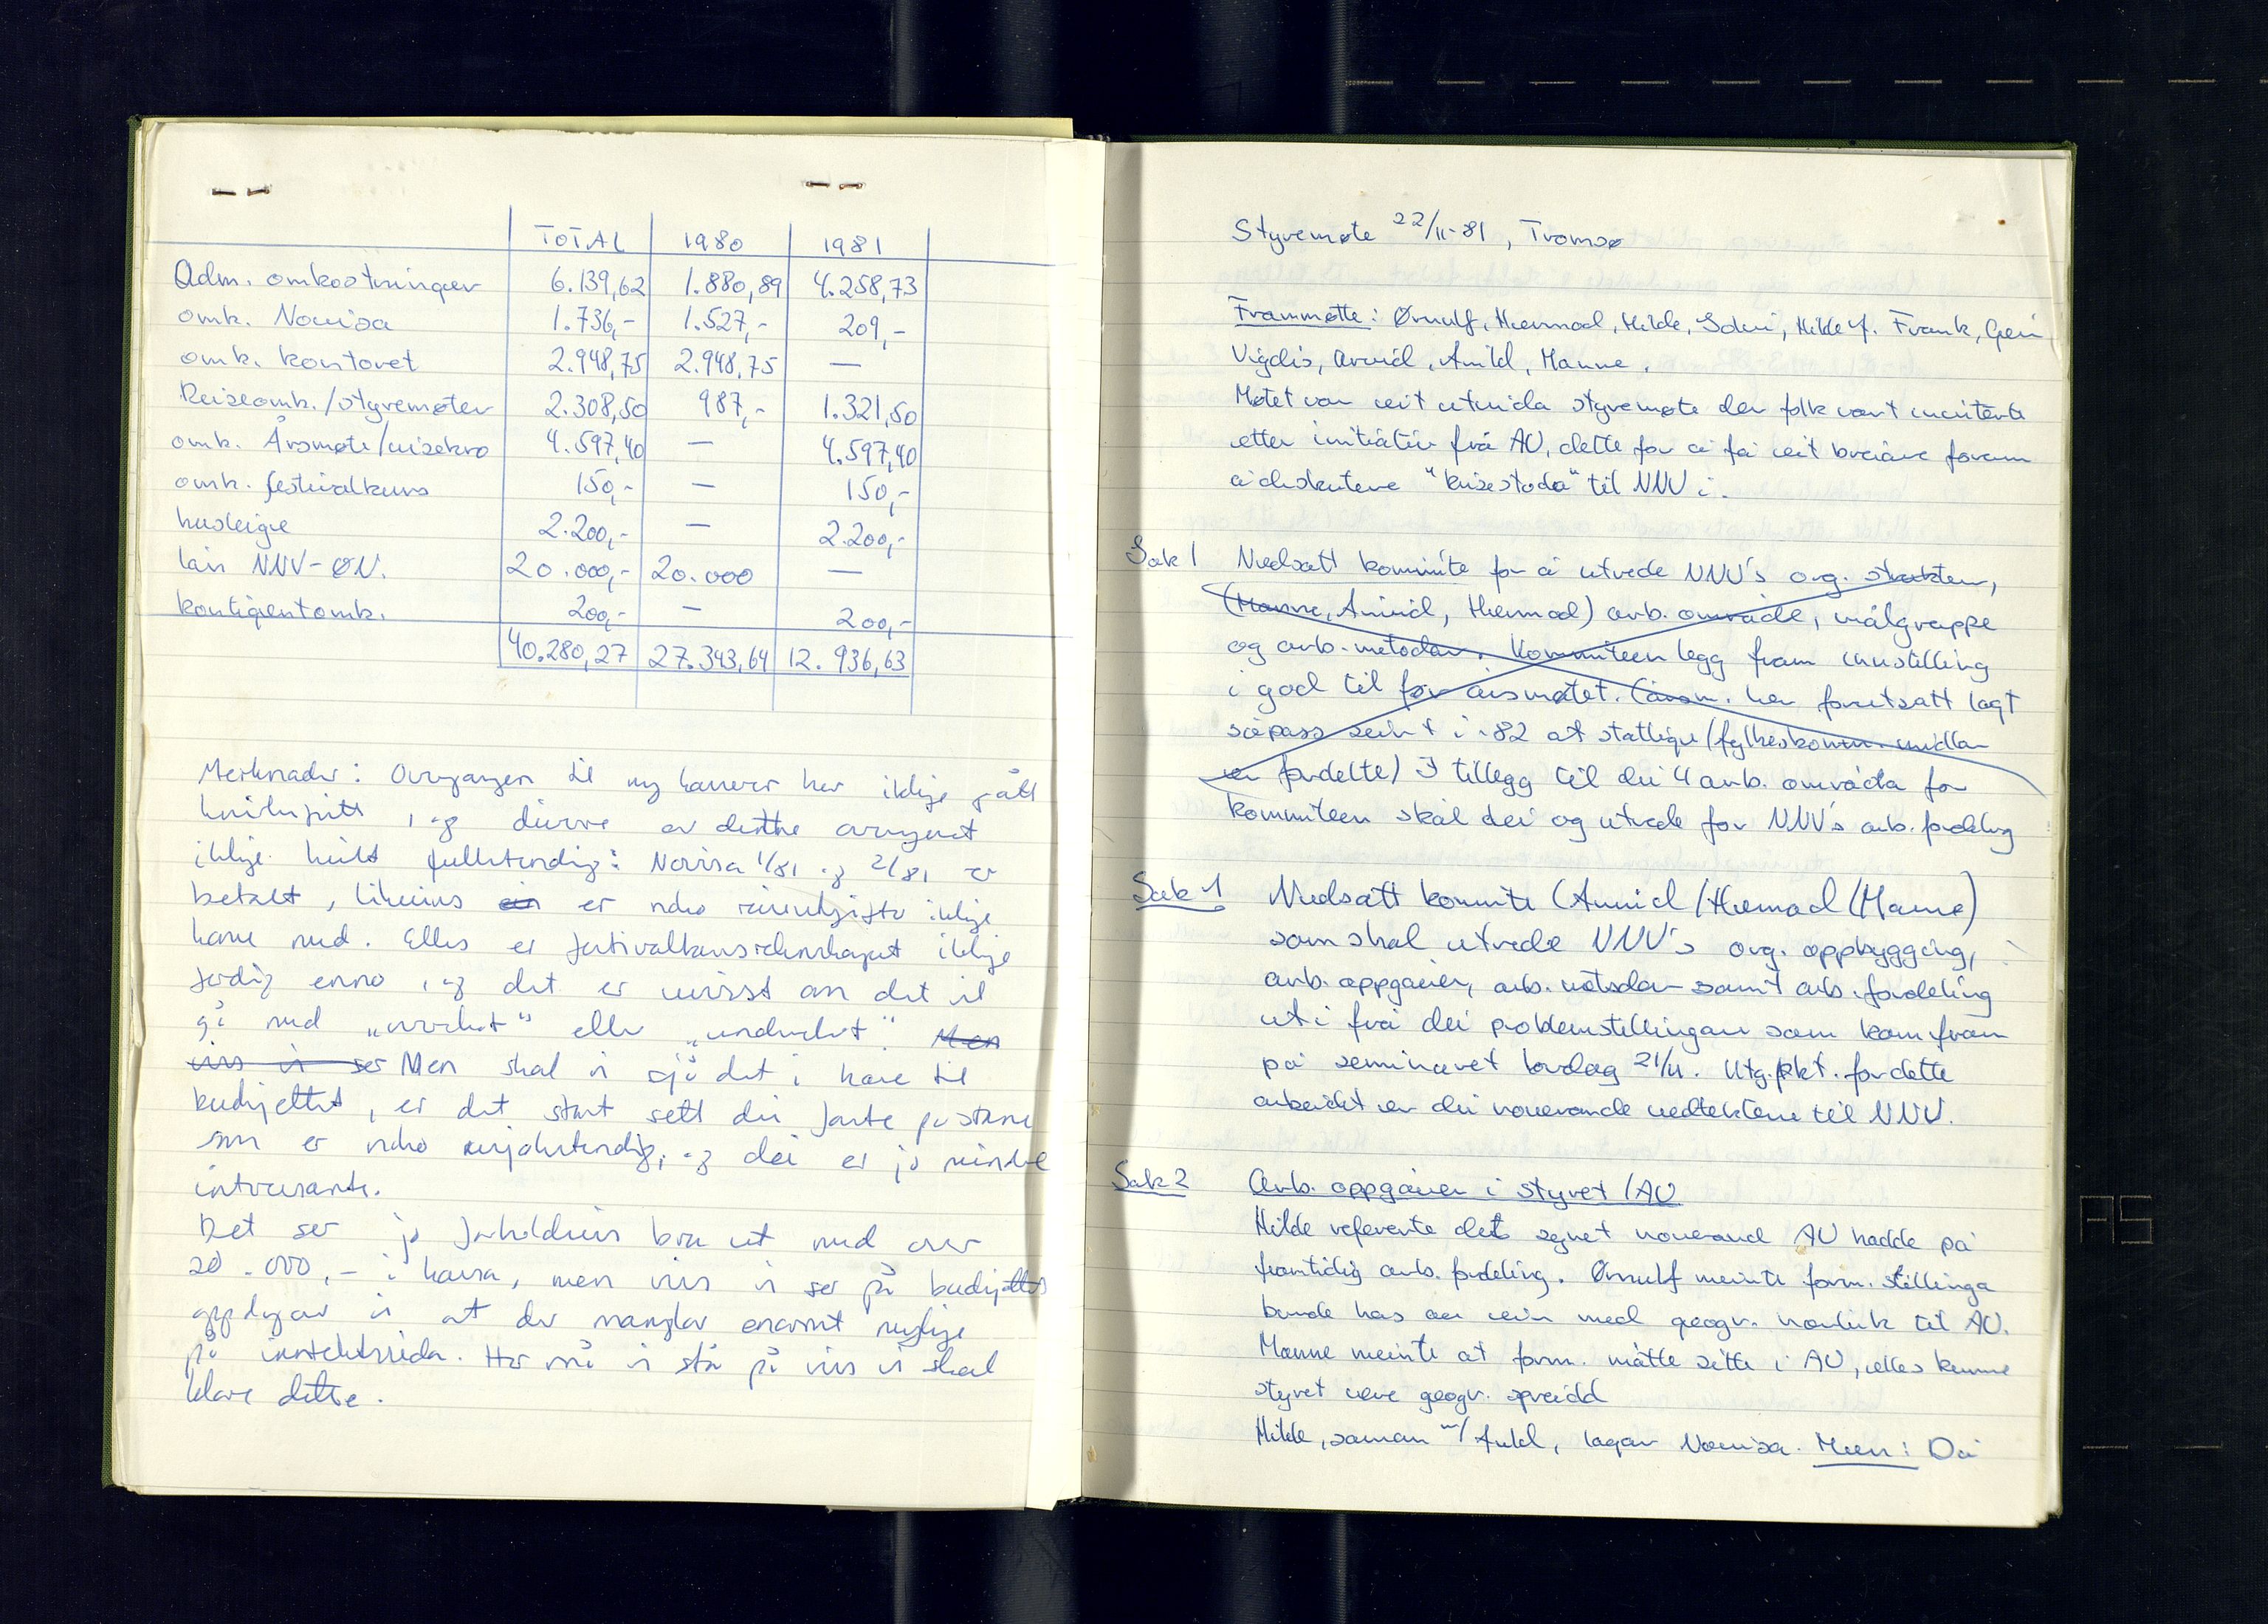 TOTAL 1980 1981
Adm. omkostninger 6.139,62 1.880,89 4.258,73
omk. Novisa 1.736,- 1.527,- 209,-
omk. kontoret 2.948,75 2.948,75 —
Reiseomk./styremøter 2.308,50 987,- 1.321,50
omk. Årsmøte/visekro 4.597,40 — 4.597,40
omk. festivalkurs 150,- — 150,-
husleige 2.200,- — 2.200,-
lån NNV-ØN. 20.000,- 20.000 —
kontigentomk. 200,- — 200,-
40.280,27 27.343,64 12.936,63
Merknader: Overgangen til ny kasserer har ikkje gått
, og dirre er dette oversynet
ikkje heilt fullstendig: Novisa 1/81 og 2/81 er
betalt, likeins ein er noko reiseutgifter ikkje
kome med. Elles er festivalkursrekneskapet ikkje
ferdig enno, og det er uvisst om det vil
gå med "overskot" eller "underskot". Men
viss vi ser Men skal vi sjå det i have til
budsjettet, er det stort sett dei faste postane
som er noko ufullstendig, og dei er jo mindre
intresante.
Det ser jo forholdsvis bra ut med over
20.000,- i kassa, men viss vi ser på budsjettet
oppdagar vi at det manglar enormt mykje
på inntektssida. Her må vi stå på viss vi skal
klare dette.
Styremøte 22/11-81, Tromsø
Frammøtte: Ørnulf, Hermod, Hilde, Solvi, Hilde f. Frank, Geir
Vigdis, Arvid, Arnild, Manne.
Møtet var eit utvida styremøte der folk vart inviterte
etter initiativ frå AU, dette for å få eit breiare forum
å diskutere "krisestoda" til NNV i.
Sak 1 Nedsatt kommite for å utrede NNV's org. struktur,
(Manne, Arnid, Hermod) arb. område, målgruppe
og arb.-metodar. Kommiteen legg fram innstilling
i god til før årsmøtet. (årsm. her forutsatt lagt
såpass seint i -82 at statlige/fylkeskomm. midlar
er fordelte) I tillegg til dei 4 arb. områda for
kommiteen skal dei og utrede for NNV's arb. fordeling
Sak 1 Nedsatt kommite (Arnid/Hermod/Manne)
som skal utrede NNV's org. oppbygging,
arb. oppgaver, arb. metodar samt arb. fordeling
ut i frå dei problemstillingar som kom fram
på seminaret lørdag 21/11. Utg.pkt. for dette
arbeidet er dei noverande vedtektene til NNV.
Sak 2 Arb. oppgaver i styret/AU
Hilde referente det synet noverand AU hadde på
framtidig arb. fordeling. Ørnulf meinte form. stillinga
burde has av ein med geogr. nærleik til AU.
Manne meinte at form. måtte sitte i AU, elles kunne
styret vere geogr. spreidd
Hilde, saman m/ Arild, lagar Novisa. Men: Då